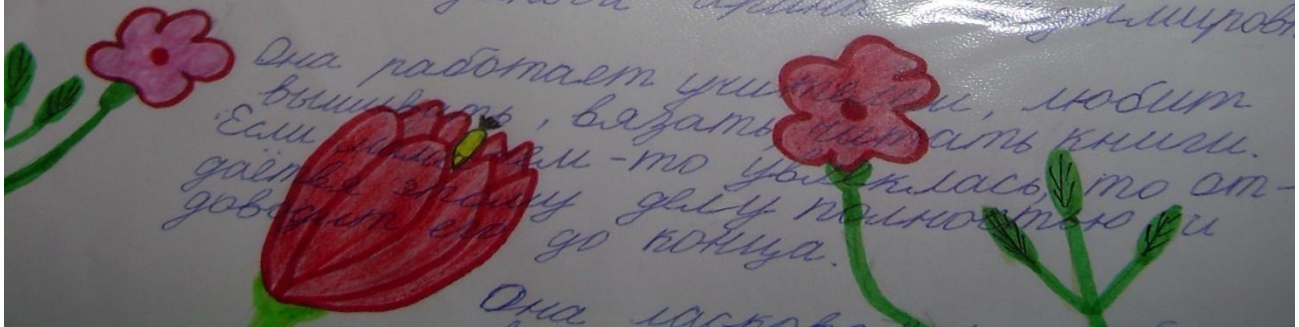 Она работает учителем, любит
вышивать, вязать, читать книги.
Если мама чем-то увлеклась, то от-
даётся этому делу полностью и
доводит его до конца.
Она ласкова